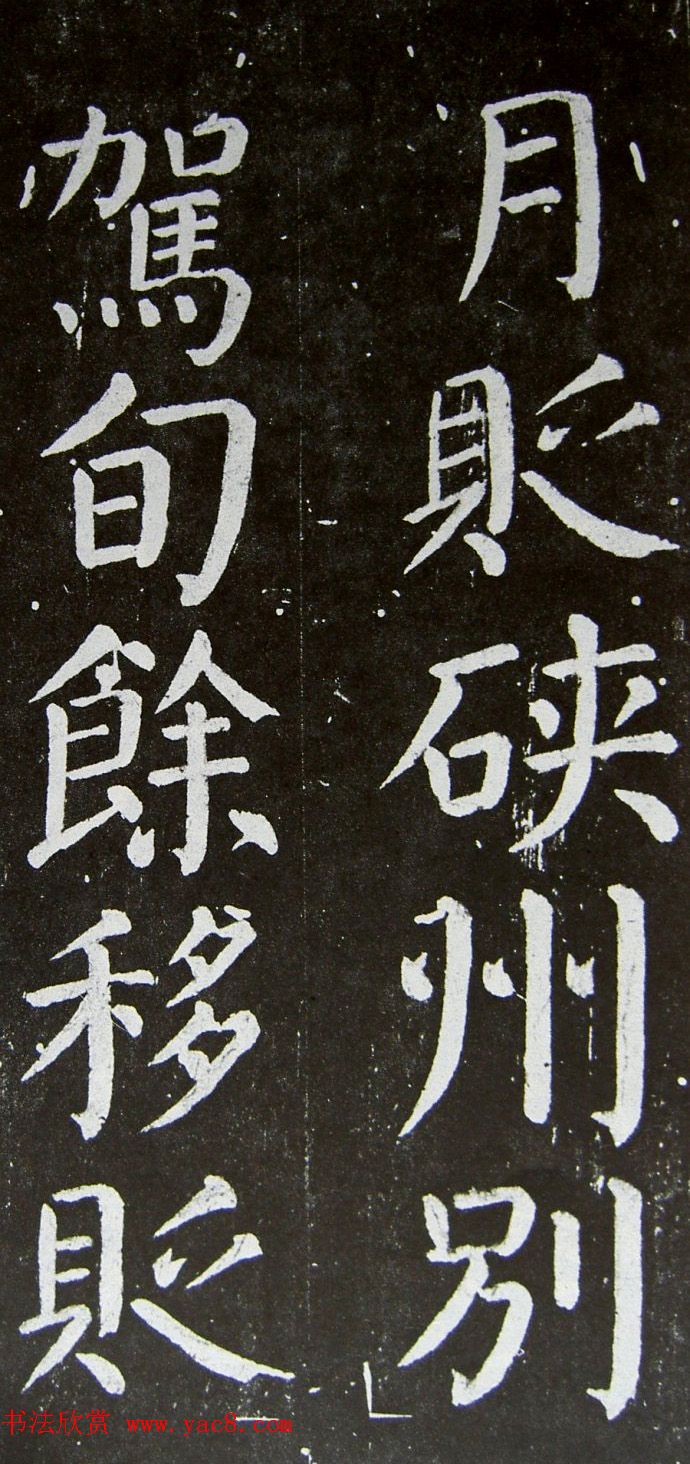 月貶硤州別
駕旬餘移貶
书法欣赏 www.yac8.com